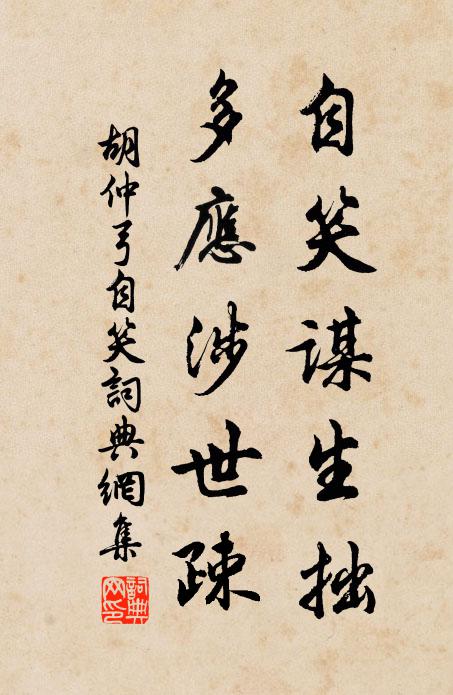 自笑謀生拙
多應涉世疎
胡仲弓自笑詞典網集
詞典網印